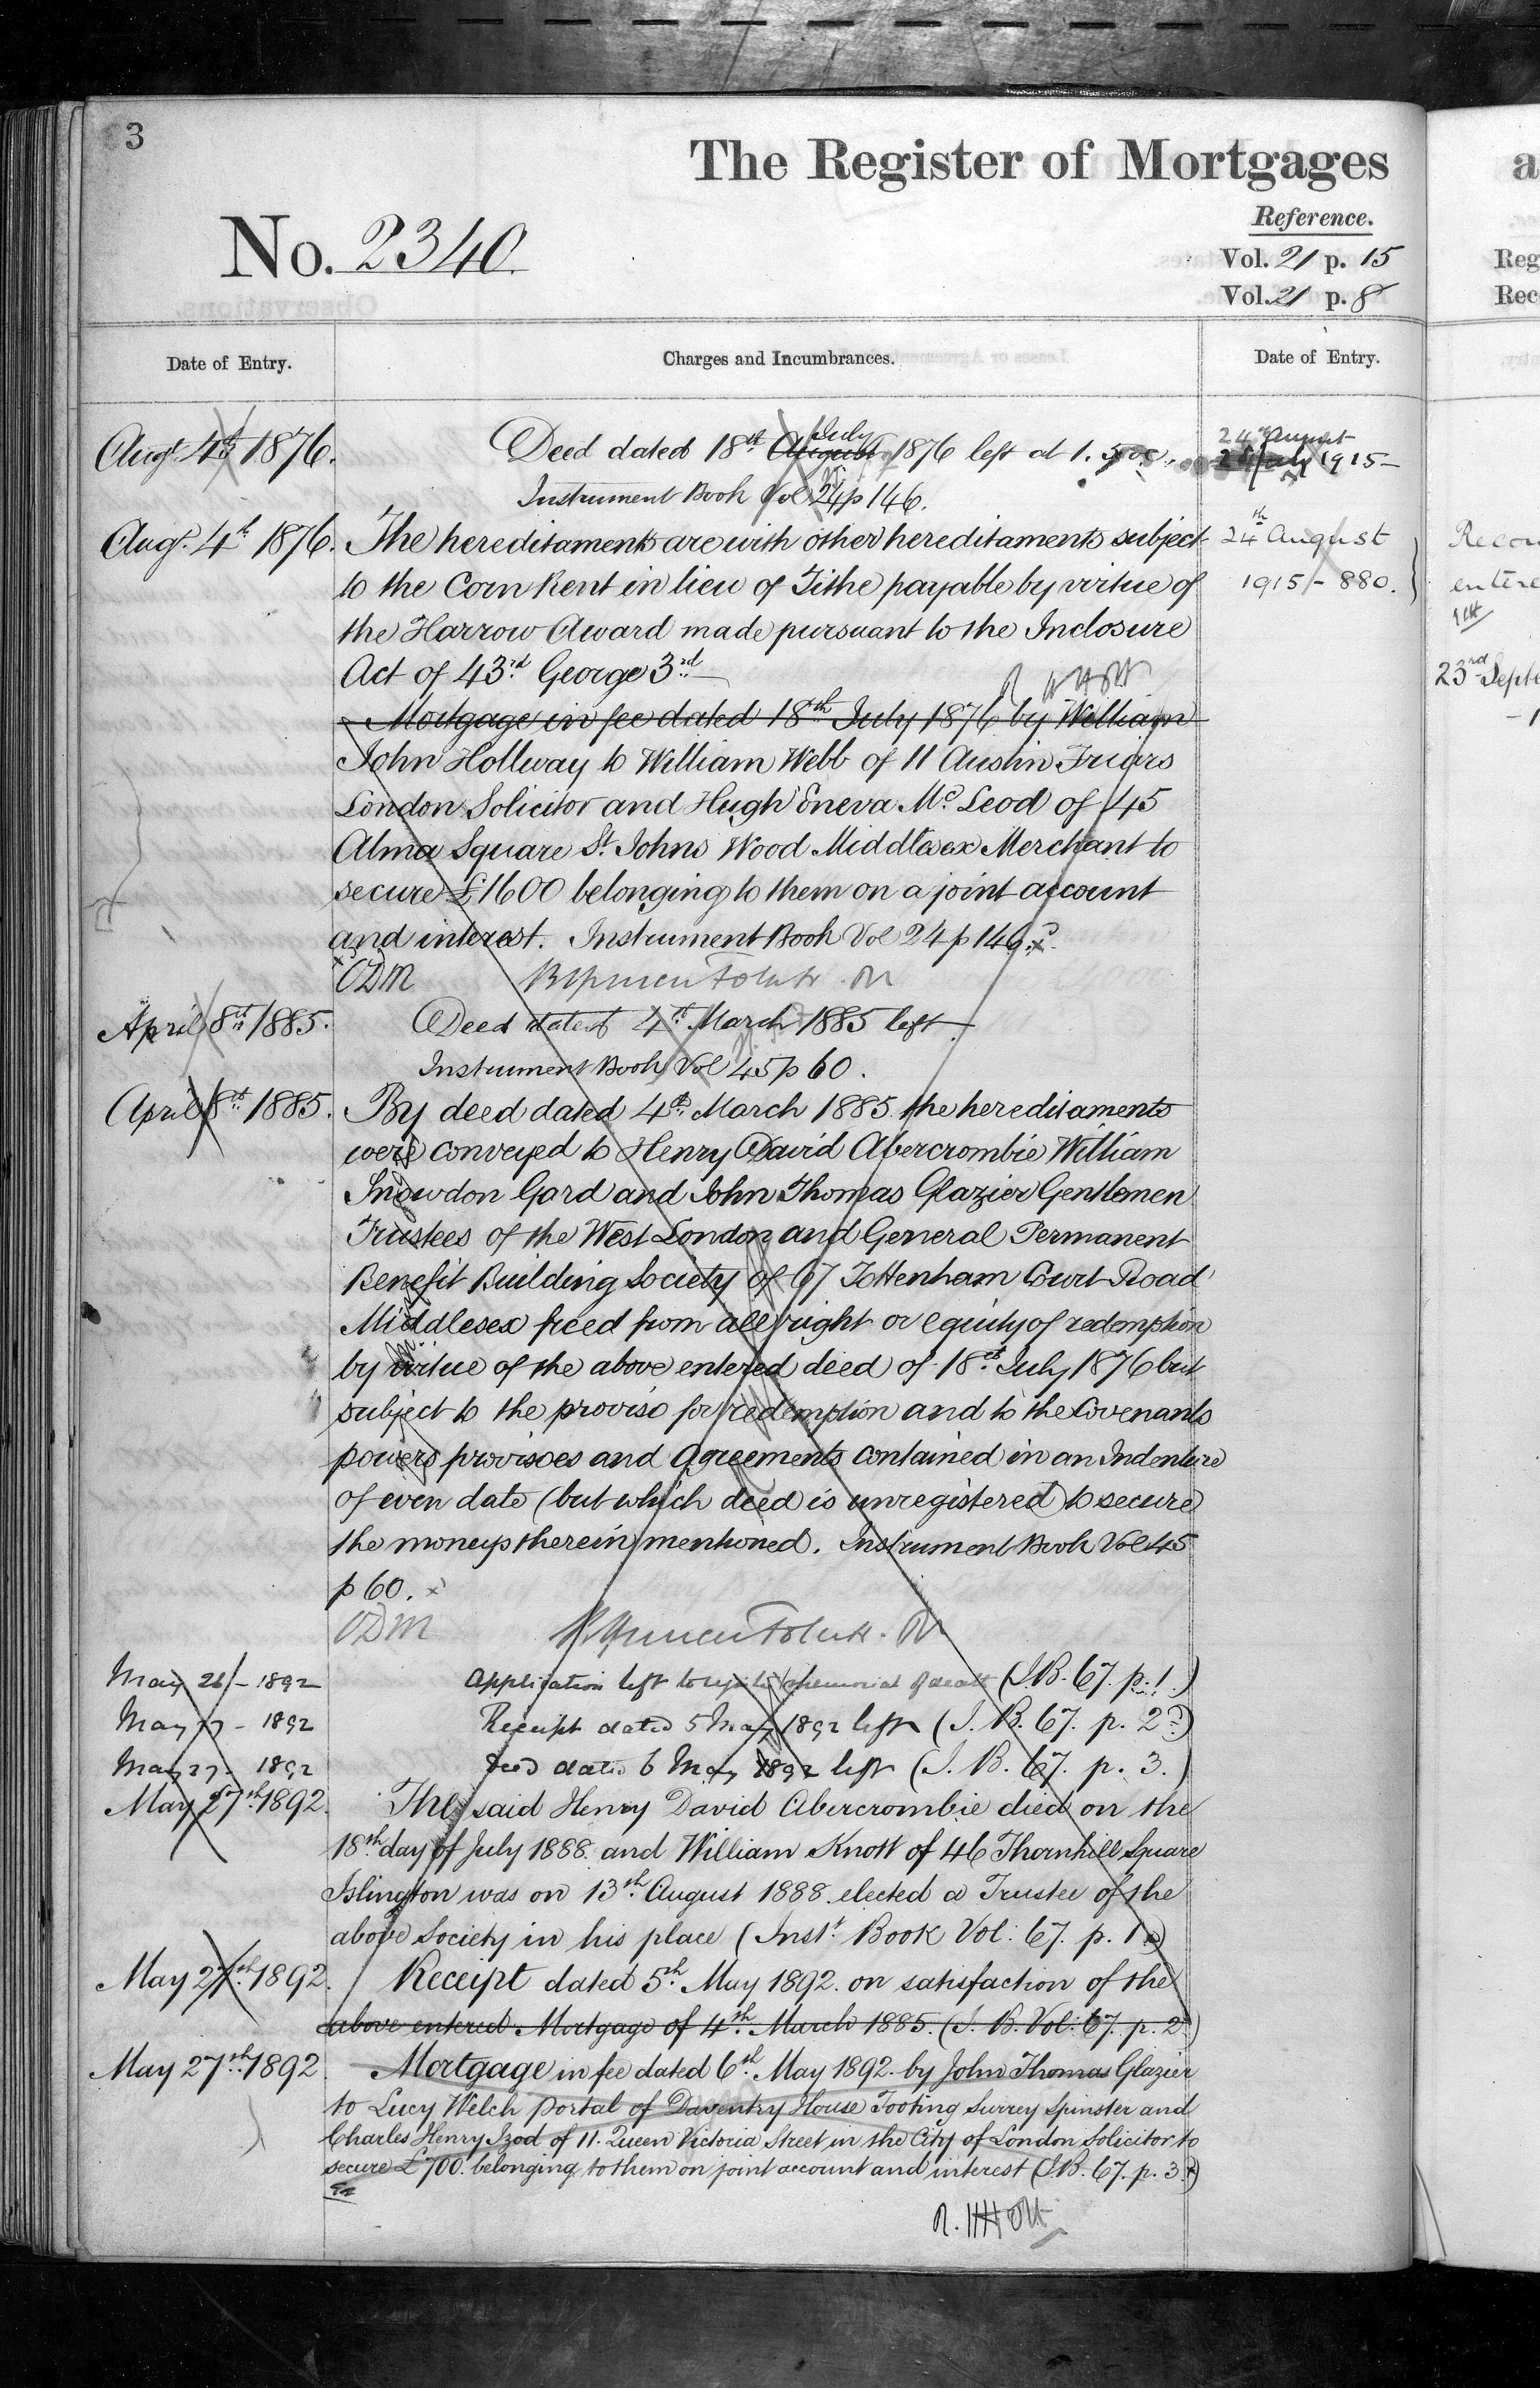 3
The Register of Mortgages
Reference.
No. 2340.
Vol. 21 p. 15
Vol. 21 p. 8
Date of Entry.
Charges and Incumbrances.
Date of Entry.
Augt. 4th 1876.
Deed dated 18th August July 1876 left at 1.
24th August
1915 -
Instrument Book Vol 24 p 146.
Augt. 4th 1876.
The hereditaments are with other hereditaments subject
24th August
to the Corn Rent in lieu of Tithe payable by virtue of
1915 - 880.
the Harrow Award made pursuant to the Inclosure
Act of 43rd George 3rd
Mortgage in fee dated 18th July 1876 by William
John Hollway to William Webb of 11 Austin Friars
London Solicitor and Hugh Eneva Mc Leod of 45
Alma Square St. Johns Wood Middlesex Merchant to
secure £1600 belonging to them on a joint account
and interest. Instrument Book Vol 24 p 146.
ODM
April 8th 1885.
Deed dated 4th March 1885 left.
Instrument Book Vol 45 p 60.
April 8th 1885.
By deed dated 4th March 1885 the hereditaments
were conveyed to Henry David Abercrombie William
Snowdon Gard and John Thomas Glazier Gentlemen
Trustees of the West London and General Permanent
Benefit Building Society of 67 Tottenham Court Road
Middlesex freed from all right or equity of redemption
by virtue of the above entered deed of 18th July 1876 but
subject to the proviso for redemption and to the Covenants
powers provisoes and agreements contained in an Indenture
of even date (but which deed is unregistered) to secure
the moneys therein mentioned. Instrument Book Vol 45
p 60.
ODM
May 26 - 1892
Application left to memorial of death (I.B. 67. p. 1.)
May 27 - 1892
Receipt dated 5 May 1892 left (I. B. 67. p. 2)
May 27 - 1892
Deed dated 6 May 1892 left (I. B. 67. p. 3.)
May 27th 1892.
The said Henry David Abercrombie died on the
18th day of July 1888 and William Knott of 46 Thornhill Square
Islington was on 13th August 1888 elected a Trustee of the
above Society in his place (Inst. Book Vol: 67. p. 1)
May 27th 1892.
Receipt dated 5th May 1892. on satisfaction of the
above entered Mortgage of 4th March 1885. (I. B. Vol: 67. p. 2)
May 27th 1892.
Mortgage in fee dated 6th May 1892. by John Thomas Glazier
to Lucy Welch Portal of Daventry House Tooting Surrey Spinster and
Charles Henry Izod of 11. Queen Victoria Street in the City of London Solicitor to
secure £700. belonging to them on joint account and interest (I.B. 67. p. 3)
a
Reg
Rec
23rd Septe